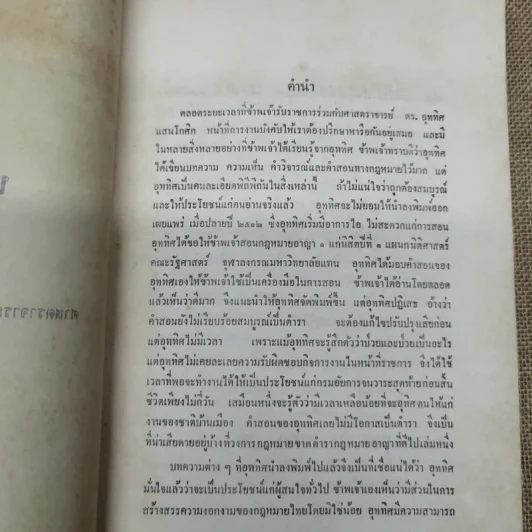 คำนำ
ตลอดระยะเวลาที่ข้าพเจ้ารับราชการร่วมกับศาสตราจารย์ ดร. อุททิศ
แสนโกศิก หน้าที่การงานบังคับให้เราต้องปรึกษาหารือกันอยู่เสมอ และมี
ในหลายสิ่งหลายอย่างที่ข้าพเจ้าได้เรียนรู้จากอุททิศ ข้าพเจ้าทราบดีว่าอุททิศ
ได้เขียนบทความ ความเห็น คำวิจารณ์และคำสอนทางกฎหมายไว้มาก แต่
อุททิศเป็นคนละเอียดพิถีพิถันในสิ่งเหล่านี้ ถ้าไม่แน่ใจว่าถูกต้องสมบูรณ์
และให้ประโยชน์แก่คนอ่านจริงแล้ว อุททิศจะไม่ยอมให้นำลงพิมพ์ออก
เผยแพร่ เมื่อปลายปี ๒๕๑๒ ซึ่งอุททิศเริ่มมีอาการไอ ไม่สะดวกแก่การสอน
อุททิศได้ขอให้ข้าพเจ้าสอนกฎหมายอาญา ๑ แก่นิสิตปีที่ ๑ แผนกนิติศาสตร์
คณะรัฐศาสตร์ จุฬาลงกรณมหาวิทยาลัยแทน อุททิศได้มอบคำสอนของ
อุททิศให้ข้าพเจ้าใช้เป็นเครื่องมือในการสอน ข้าพเจ้าได้อ่านโดยตลอด
แล้วเห็นว่าดีมาก จึงแนะนำให้อุททิศจัดพิมพ์ขึ้น แต่อุททิศปฏิเสธ อ้างว่า
คำสอนยังไม่เรียบร้อยสมบูรณ์เป็นตำรา จะต้องแก้ไขปรับปรุงเสียก่อน
แต่อุททิศไม่มีเวลา เพราะแม้อุททิศจะรู้สึกตัวว่าป่วยและป่วยเป็นอะไร
แต่อุททิศไม่เคยละเลยความรับผิดชอบกิจการงานในหน้าที่ราชการ จึงได้ใช้
เวลาที่พอจะทำงานได้ให้เป็นประโยชน์แก่กรมอัยการจนวาระสุดท้ายก่อนสิ้น
ชีวิตเพียงไม่กี่วัน เสมือนหนึ่งจะรู้ตัวว่ามีเวลาเหลือน้อยที่จะอุทิศตนให้แก่
งานของชาติบ้านเมือง คำสอนของอุททิศเลยไม่มีโอกาสเป็นตำรา จึงเป็น
ที่น่าเสียดายอยู่บ้างที่วงการกฎหมายขาดตำรากฎหมายอาญาที่ดีไปเล่มหนึ่ง
บทความต่าง ๆ ที่อุททิศนำลงพิมพ์ไปแล้วจึงเป็นที่เชื่อแน่ได้ว่า อุททิศ
มั่นใจแล้วว่าจะเป็นประโยชน์แก่ผู้สนใจทั่วไป ข้าพเจ้าเองเห็นว่ามีส่วนในการ
สร้างสรรความงอกงามของกฎหมายไทยโดยมิใช่น้อย อุททิศมีความสามารถ